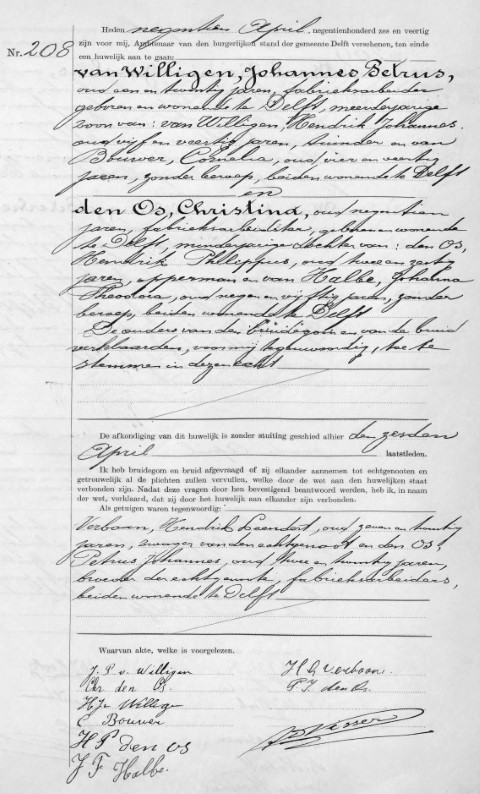 Heden negentien April, negentienhonderd zes en veertig
zijn voor mij, Ambtenaar van den burgerlijken stand der gemeente Delft verschenen, ten einde
een huwelijk aan te gaan:
Nr. 208
van Willigen, Johannes Petrus,
oud een en twintig jaren, fabrieksarbeider
geboren en wonende te Delft, meerderjarige
zoon van: van Willigen, Hendrik Johannes.
oud vijf en veertig jaren, en van
Bouwer, Cornelia, oud vier en veertig
jaren, zonder beroep, beiden wonende te Delft
en
den Os, Christina, oud negentien
jaren, fabrieksarbeidster, geboren en wonende
te Delft, minderjarige dochter van: den Os,
Hendrik Phillippus, oud twee en zestig
jaren, opperman en van Halbe, Johanna
Theodora, oud negen en vijftig jaren, zonder
beroep, beiden wonende te Delft
De ouders van den bruidegom en van de bruid
verklaarden, voor mij tegenwoordig, toe te
stemmen in dezen echt
De afkondiging van dit huwelijk is zonder stuiting geschied alhier den zesden
April laatstleden.
Ik heb bruidegom en bruid afgevraagd of zij elkander aannemen tot echtgenooten en
getrouwelijk al de plichten zullen vervullen, welke door de wet aan den huwelijken staat
verbonden zijn. Nadat deze vragen door hen bevestigend beantwoord werden, heb ik, in naam
der wet, verklaard, dat zij door het huwelijk aan elkander zijn verbonden.
Als getuigen waren tegenwoordig:
Verboon, Hendrik Leendert, oud zeven en twintig
jaren, zwager van den echtgenoot en den Os,
Petrus Johannes, oud twee en twintig jaren,
broeder der echtgenoote, fabrieksarbeiders,
beiden wonende te Delft
Waarvan akte, welke is voorgelezen.
J. P. v. Willigen
Chr den Os.
H J v Willigen
C Bouwer
H P den os
J T Halbe.
H L Verboon
P. J. den Os.